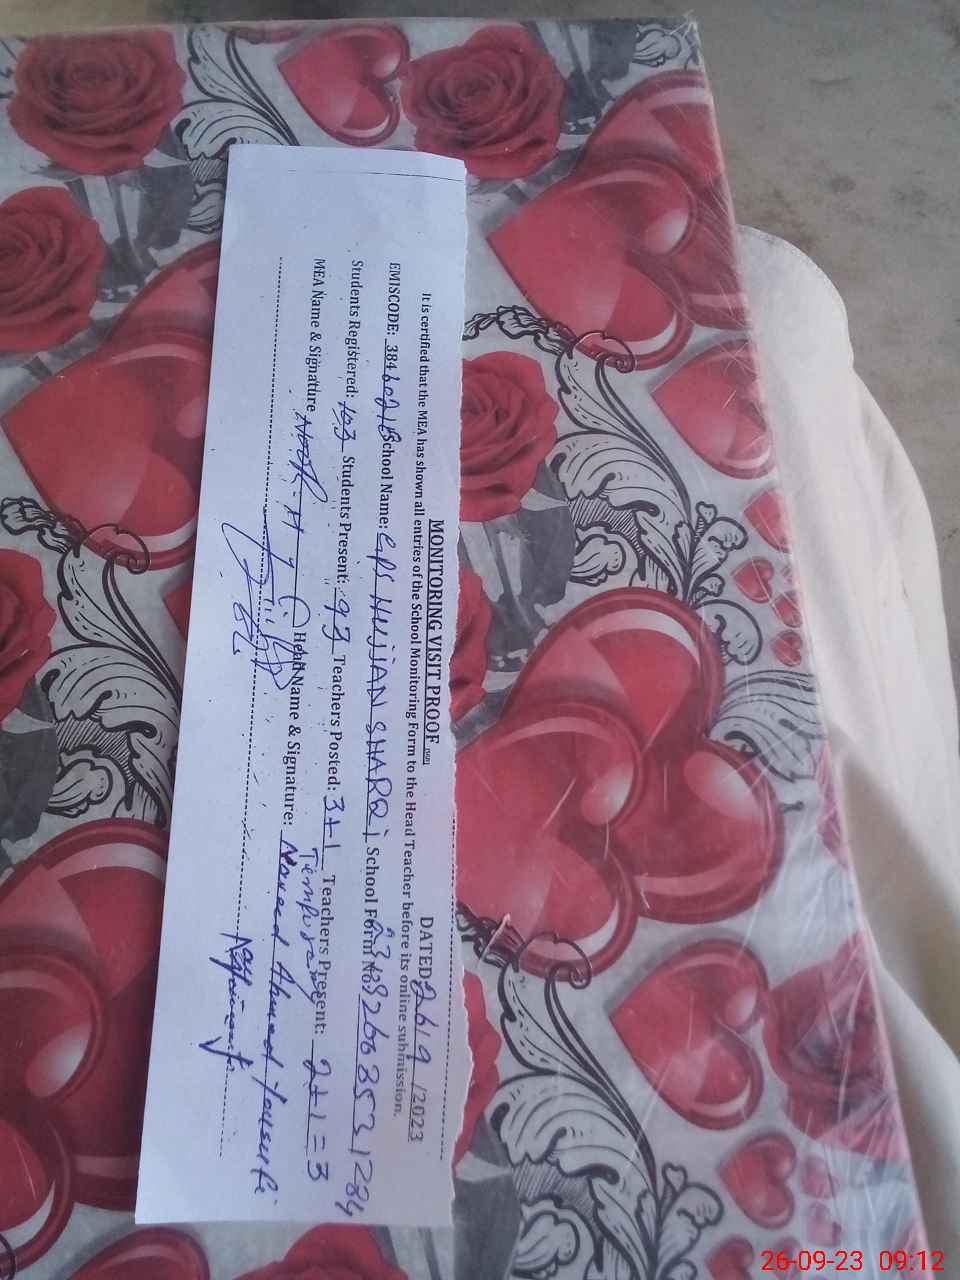 MONITORING VISIT PROOF DATED 26/9/2023
It is certified that the MEA has shown all entries of the School Monitoring Form to the Head Teacher before its online submission.
EMISCODE: 38460216 School Name: GPS HUSSIAN SHARRi School Form No.
Students Registered: 103 Students Present: 93 Teachers Posted: 3+1 Teachers Present: 2+1=3
MEA Name & Signature Head Name & Signature: Naveed Ahmad
26-09-23 09:12